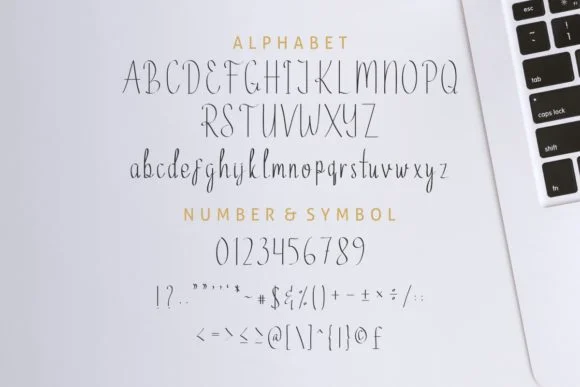 ALPHABET
ABCDEFGHIJKLMNOPQ
RSTUVWXYZ
abcdefghijklmnopqrstuvwxyz
NUMBER & SYMBOL
0123456789
!?..""''*~#$&%()+-±×÷/::
<=>≤≥@[\]^{|}©£
esc
tab
caps lock
shift
fn